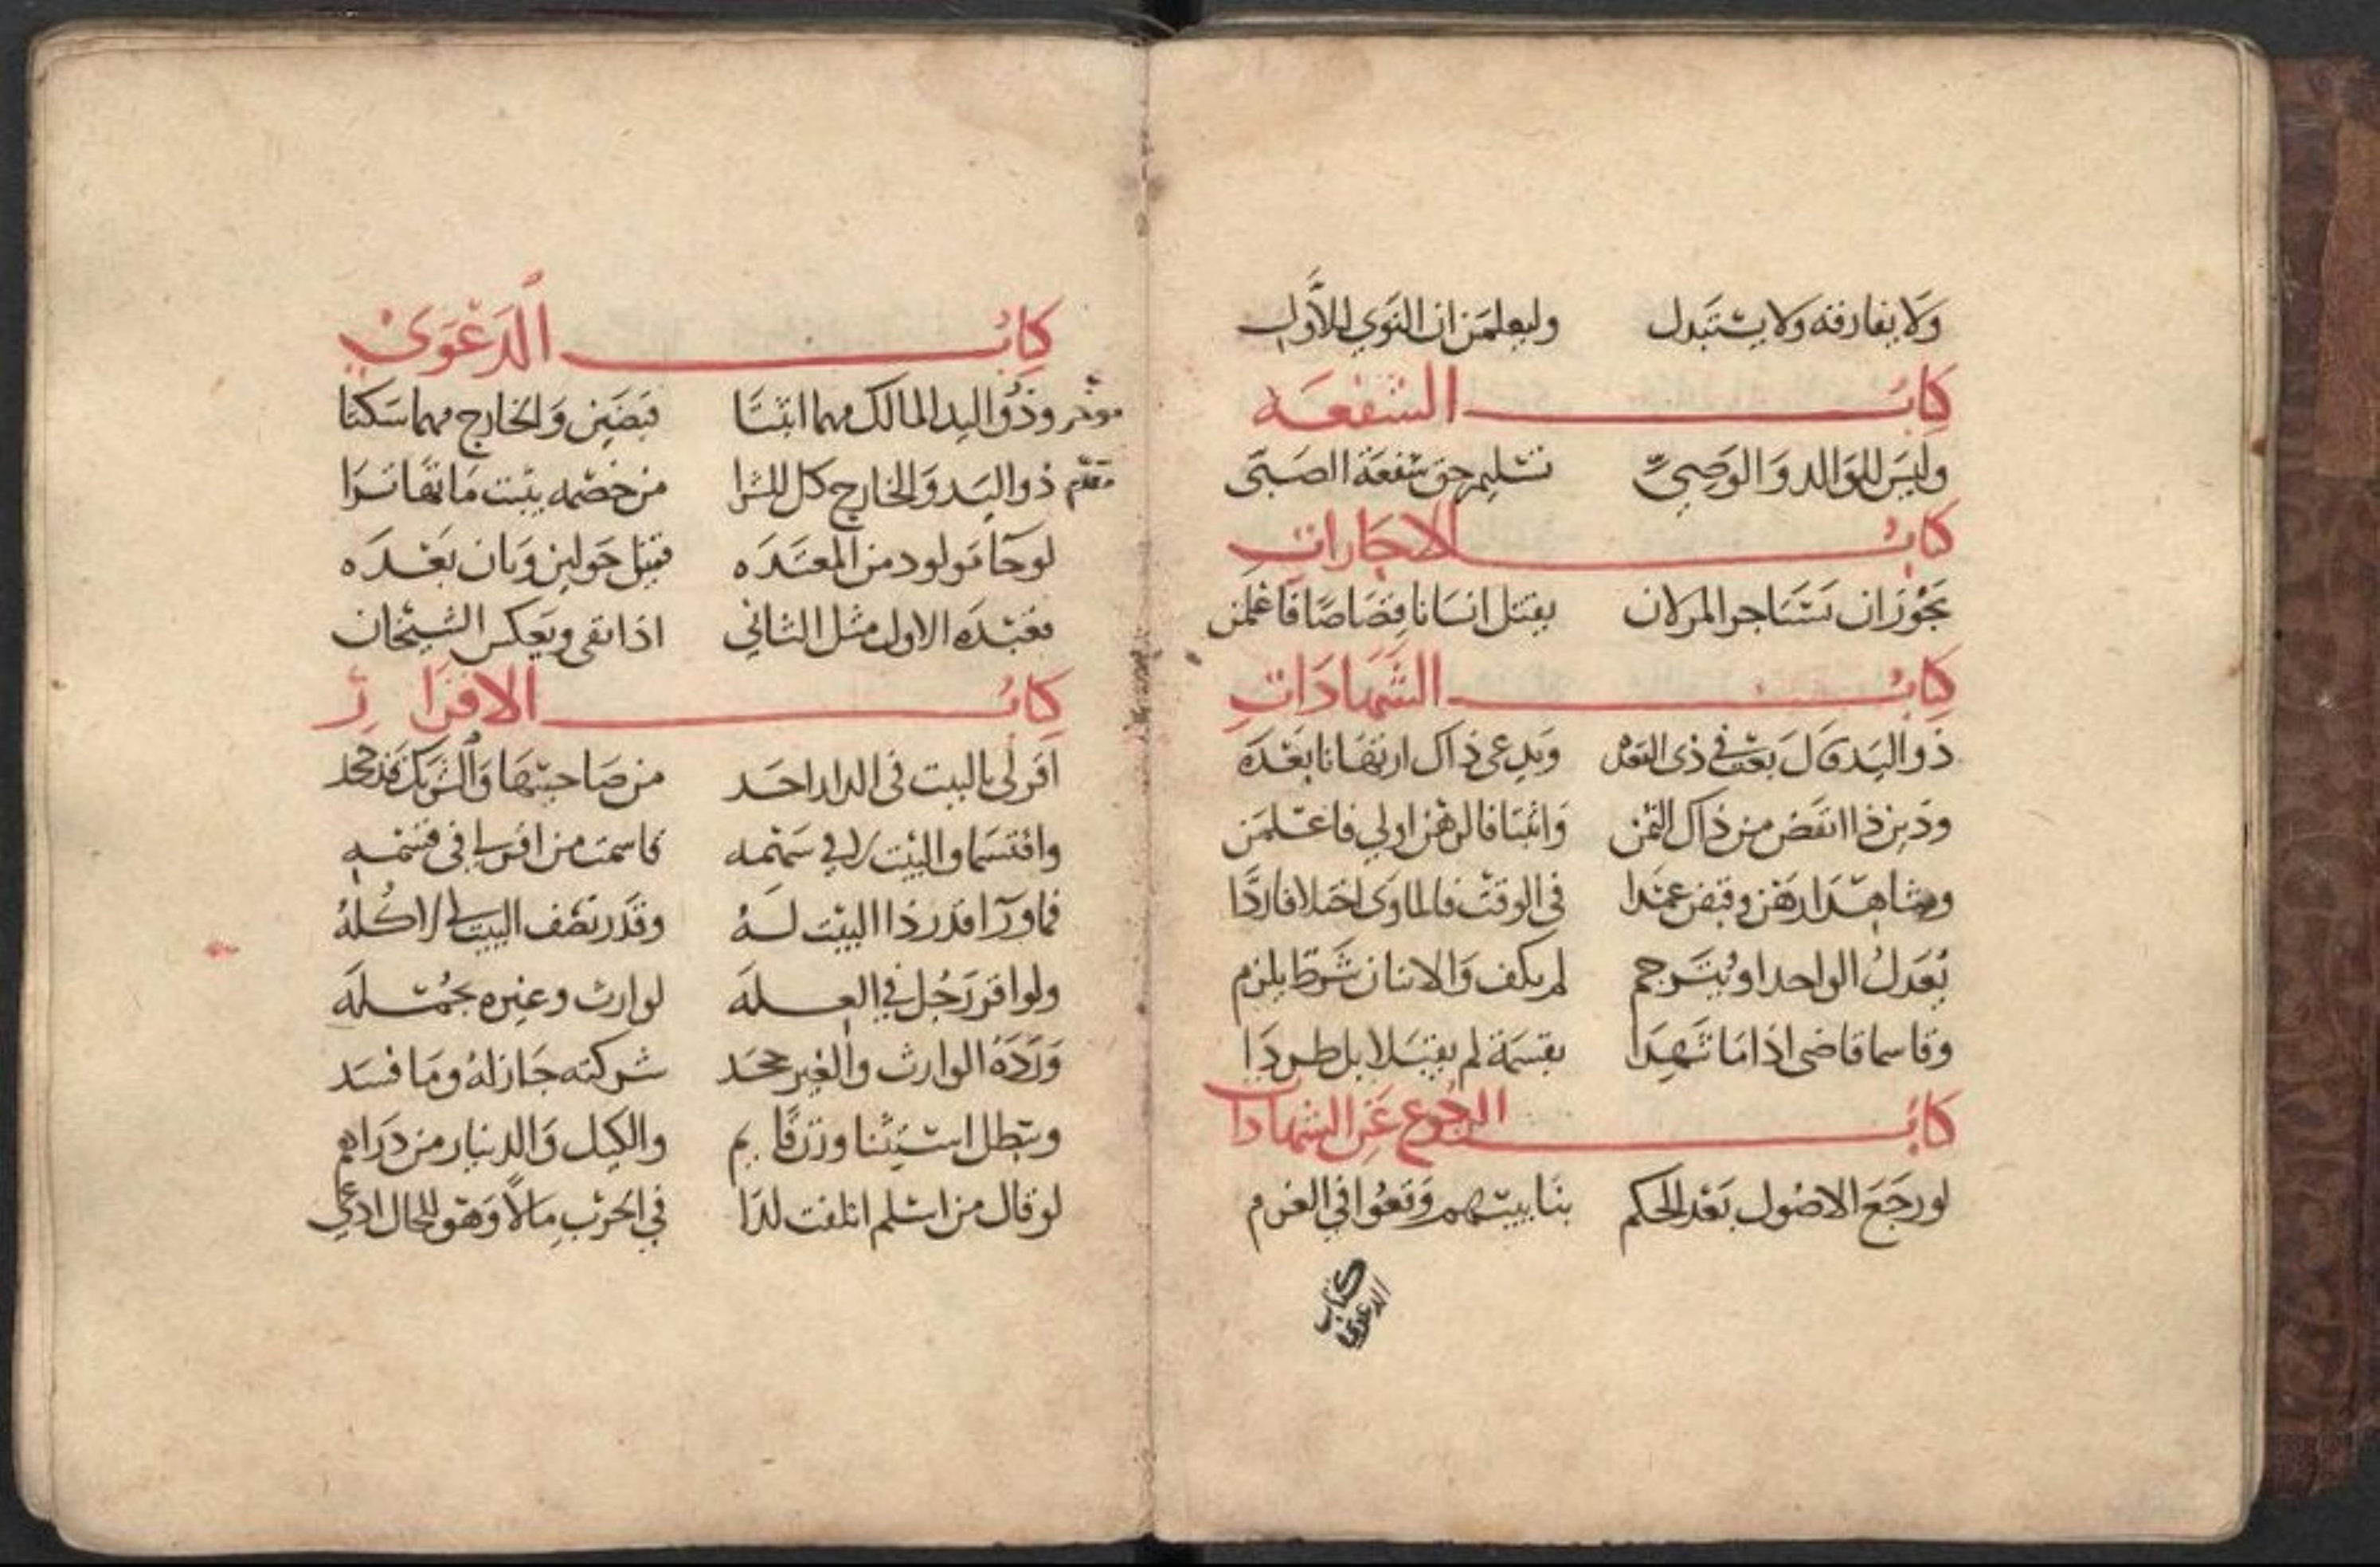 ولا يفارقه ولا يستبدل وليعلمن ان النوي للأول
كتاب الشفعة
وليس للوالد والوصي تسليم حق شفعة الصبي
كتاب الاجارات
يجوز ان تستاجر المرلان بقتل انسانا قصاصا فاعلمن
كتاب الشهادات
ذو اليد قال بعت في ذي ويدعي ذاك ارتهانا بعده
ودين ذا انقض من ذاك الثمن واثبتا فالرهن اولي فاعلمن
وشاهدا رهن وقبض عمدا في الوقت فالماوى اختلافا ردا
يعدل الواحد او يترجم لم يكف والاثنان شرط يلزم
وقاسما قاضى اذا ما شهدا بقسمة لم يقبلا بل طردا
كتاب الرجوع عن الشهادات
لو رجع الاصول بعد الحكم بنا ببيتهم وقعوا في الغرم
كتاب
الدعوي
كتاب الدعوي
موخر وذو اليد المالك مهما اثبتا قبضين والخارج مهما سكتا
مقدم ذو اليد والخارج كل للشرا من خصمه يثبت ما تهاترا
لو جا مولود من المعتده قبيل حولين وبان بعده
فعنده الاول مثل الثاني اذا نفى ويعكس الشيخان
كتاب الاقرار
اقر لي بالبيت في الدار احد من صاحبيها والشريك قد جحد
واقتسما والبيت في سهمه قاسمت من اقر لي في قسمه
فما ورا قدر ذا البيت له وقدر نصف البيت لي كله
ولو اقر رجل في العله لوارث وغيره بجمله
ورده الوارث والغير جحد شركته جاز له وما فسد
ويبطل استيثنا وزرقا بم والكيل والدينار من دراهم
لو قال من اسلم اتلفت لذا في الحرب مالا وهو للحال ادعي